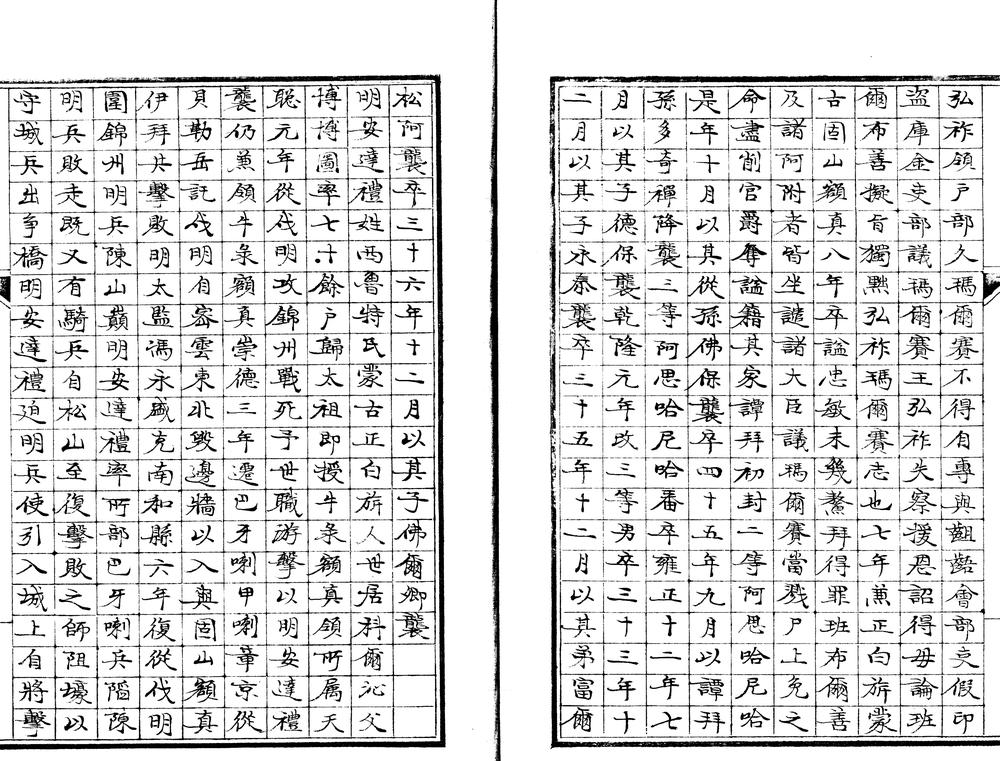 弘祚領戶部久瑪爾賽不得自專與齟齬會部吏假印
盜庫金吏部議瑪爾賽王弘祚失察援恩詔得毋論班
爾布善擬旨獨黜弘祚瑪爾賽志也七年兼正白旂蒙
古固山額真八年卒謚忠敏未幾鰲拜得罪班布爾善
及諸阿附者皆坐譴諸大臣議瑪爾賽當戮尸上免之
命盡削官爵奪謚籍其家譚拜初封二等阿思哈尼哈
是年十月以其從孫佛保襲卒四十五年九月以譚拜
孫多奇禪降襲三等阿思哈尼哈番卒雍正十二年七
月以其子德保襲乾隆元年改三等男卒三十三年十
二月以其子永泰襲卒三十五年十二月以其弟富爾
松阿襲卒三十六年十二月以其子佛爾卿襲
明安達禮姓西魯特氏蒙古正白旂人世居科爾沁父
博博圖率七十餘戶歸太祖即授牛彔額真領所屬天
聰元年從伐明攻錦州戰死予世職游擊以明安達禮
襲仍兼領牛彔額真崇德三年遷巴牙喇甲喇章京從
貝勒岳託伐明自密雲東北毀邊牆以入與固山額真
伊拜共擊敗明太監馮永盛克南和縣六年復從伐明
圍錦州明兵陳山巔明安達禮率所部巴牙喇兵陷陳
明兵敗走既又有騎兵自松山至復擊敗之師阻壕以
守城兵出爭橋明安達禮迫明兵使引入城上自將擊